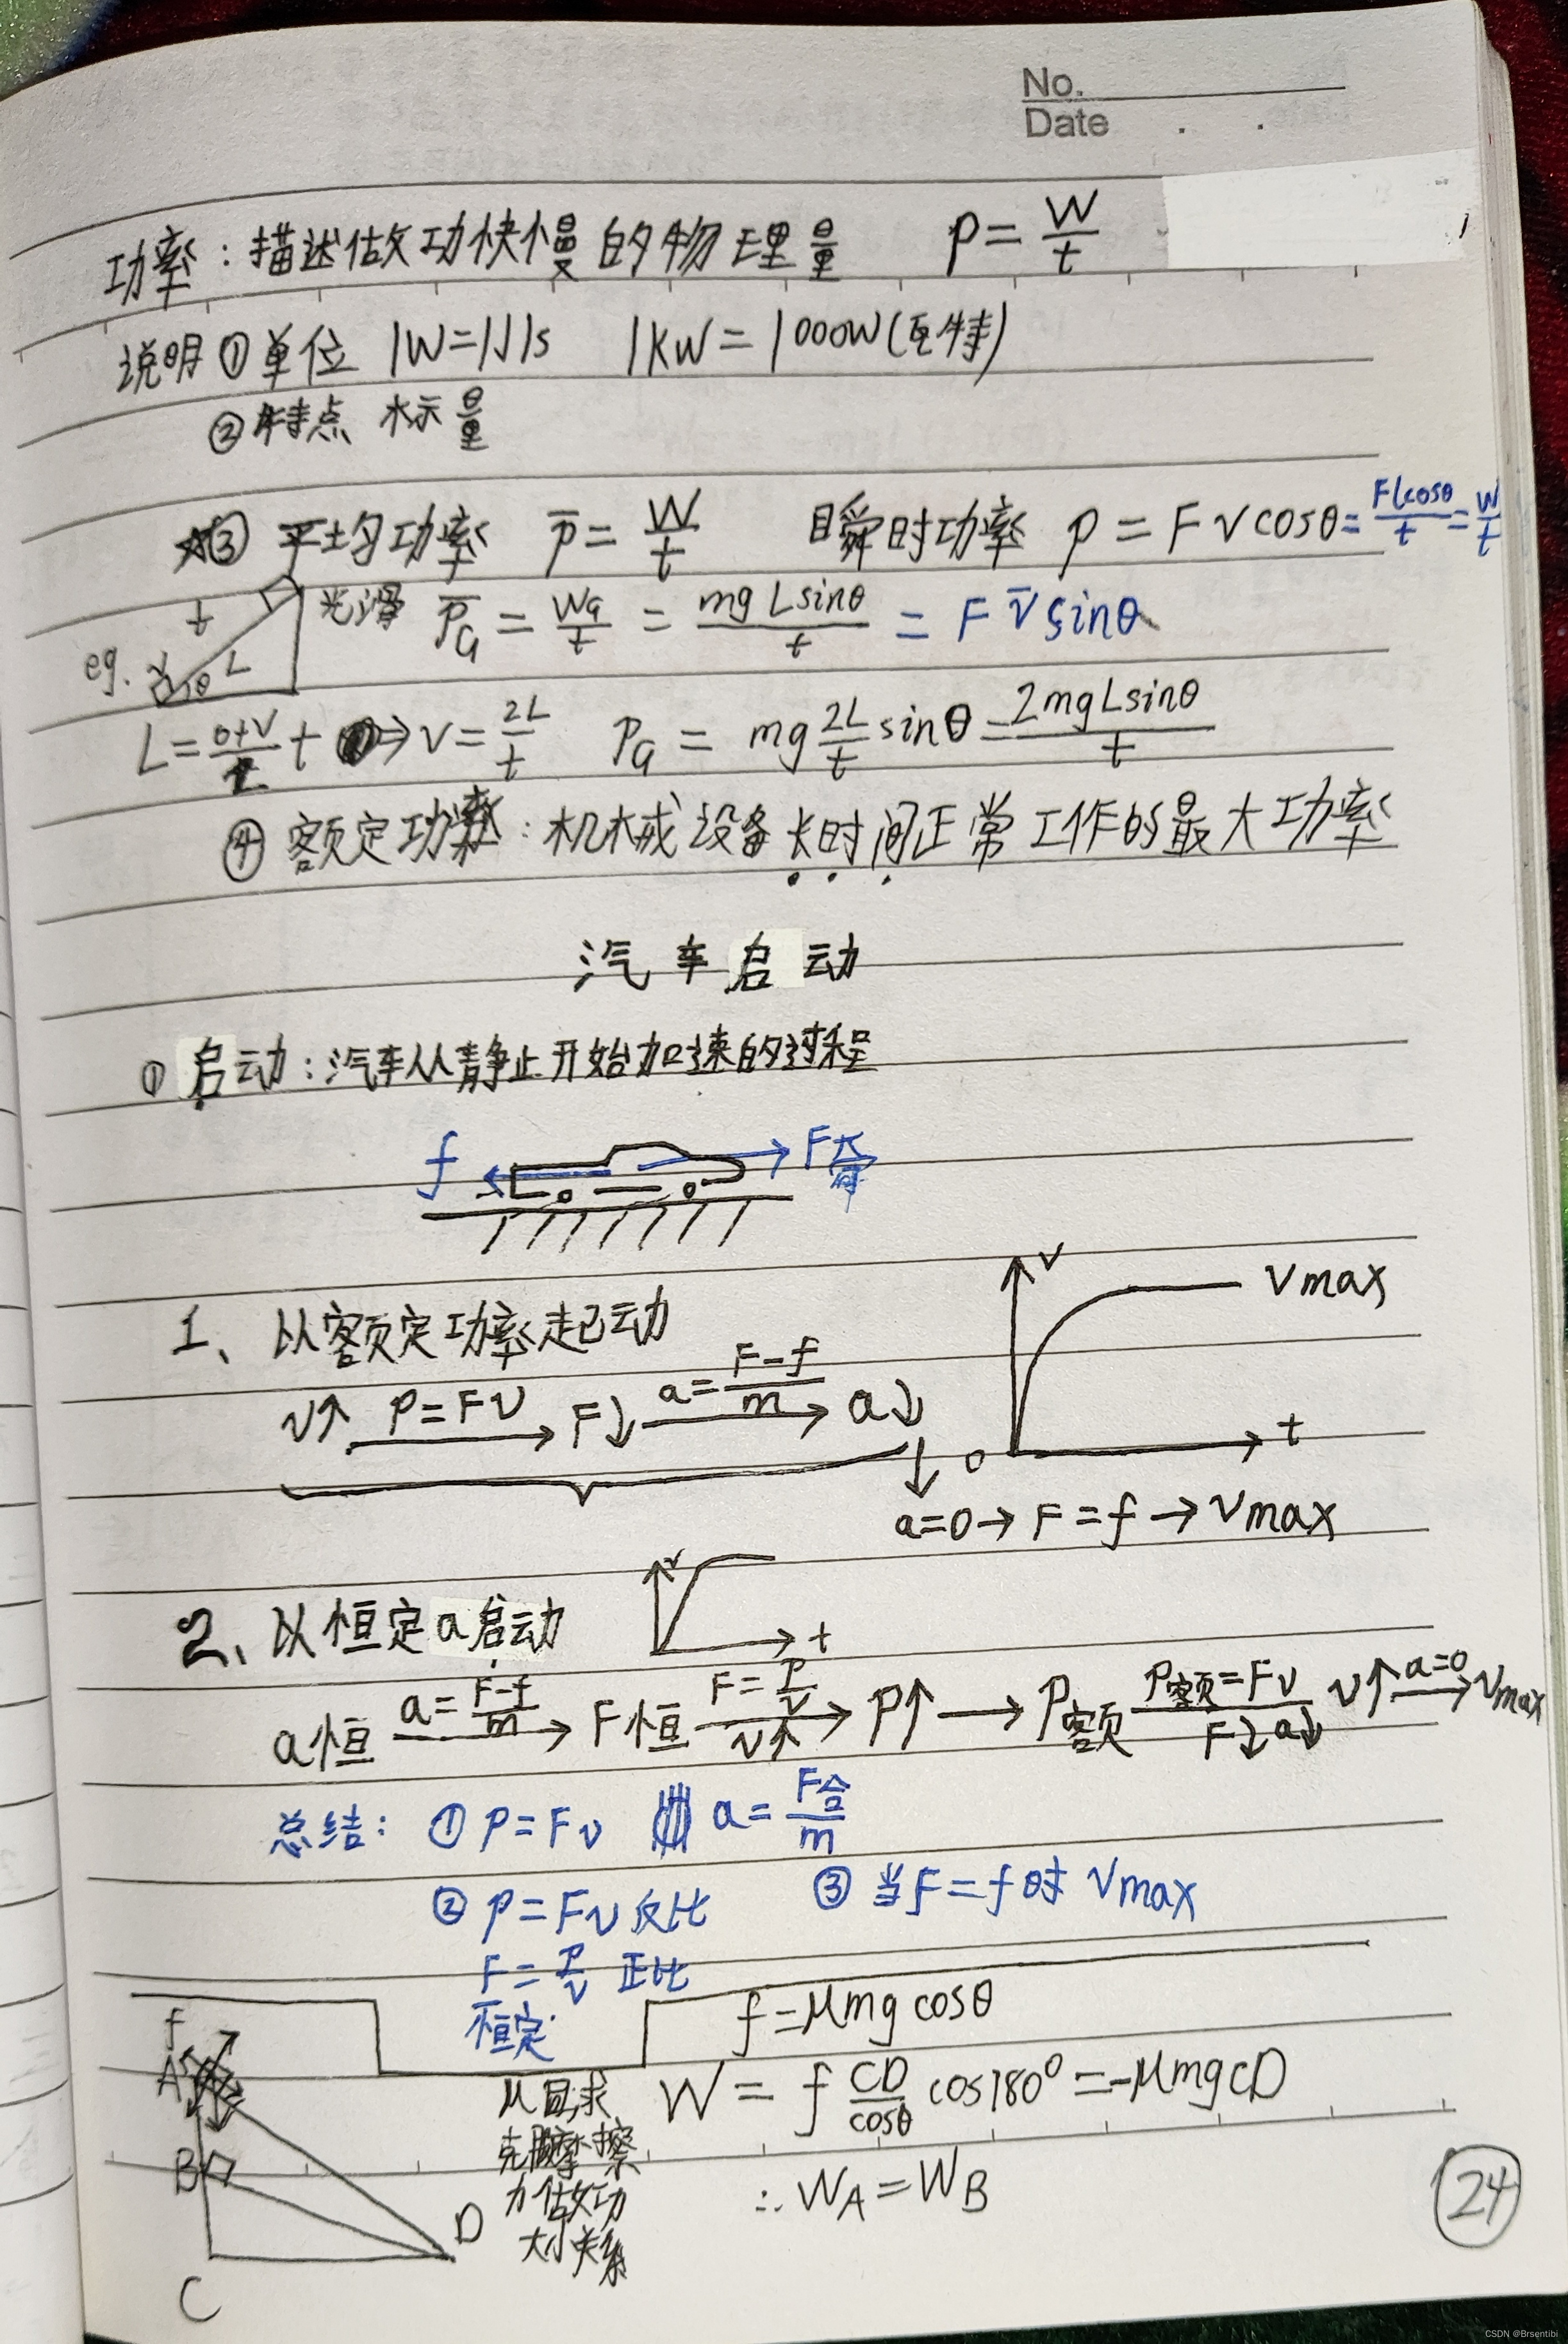 No.
Date . .
功率：描述做功快慢的物理量 P=W/t
说明①单位 1W=1J/s 1kW=1000W(瓦特)
②特点 标量
☆③ 平均功率 P̄=W/t 瞬时功率 P=Fvcosθ=Flcosθ/t=W/t
eg. t L θ v 光滑 P̄G=WG/t=mgLsinθ/t=Fv̄sinθ
L=(0+v)/2 t ⇒v=2L/t PG=mg 2L/t sinθ=2mgLsinθ/t
④ 额定功率：机械设备长时间正常工作的最大功率
汽车启动
① 启动：汽车从静止开始加速的过程
f F牵
1、以额定功率起动 v vmax
v↑ P=Fv→ F↓ a=(F-f)/m→ a↓ 0 t
↓
a=0→F=f→vmax
2、以恒定a启动 v t
a恒 a=(F-f)/m→ F恒 F=P/v v↑→ P↑→P额 P额=Fv F↓a↓ v↑ a=0→vmax
总结：①P=Fv a=F合/m
②P=Fv 反比 ③当F=f时 vmax
F=P/v 正比
恒定
f=μmgcosθ
f
A
μ 同,求 W=f CD/cosθ cos180°=-μmgCD
克服摩擦
B
力做功 ∴WA=WB
大小关系
D
C
24
CSDN @Brsentibi